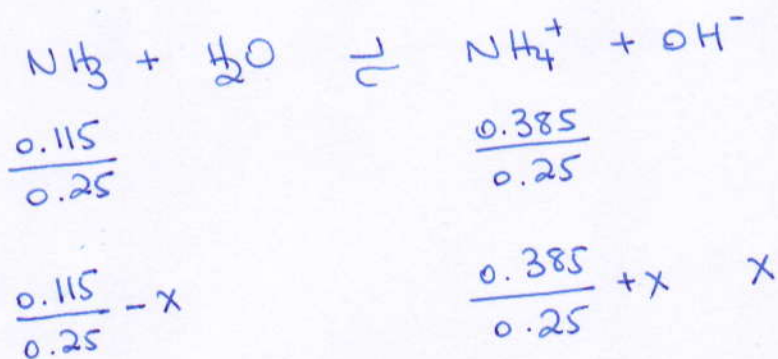 NH₃ + H₂O ⇌ NH₄⁺ + OH⁻
0.115/0.25 0.385/0.25
0.115/0.25 - x 0.385/0.25 + x x